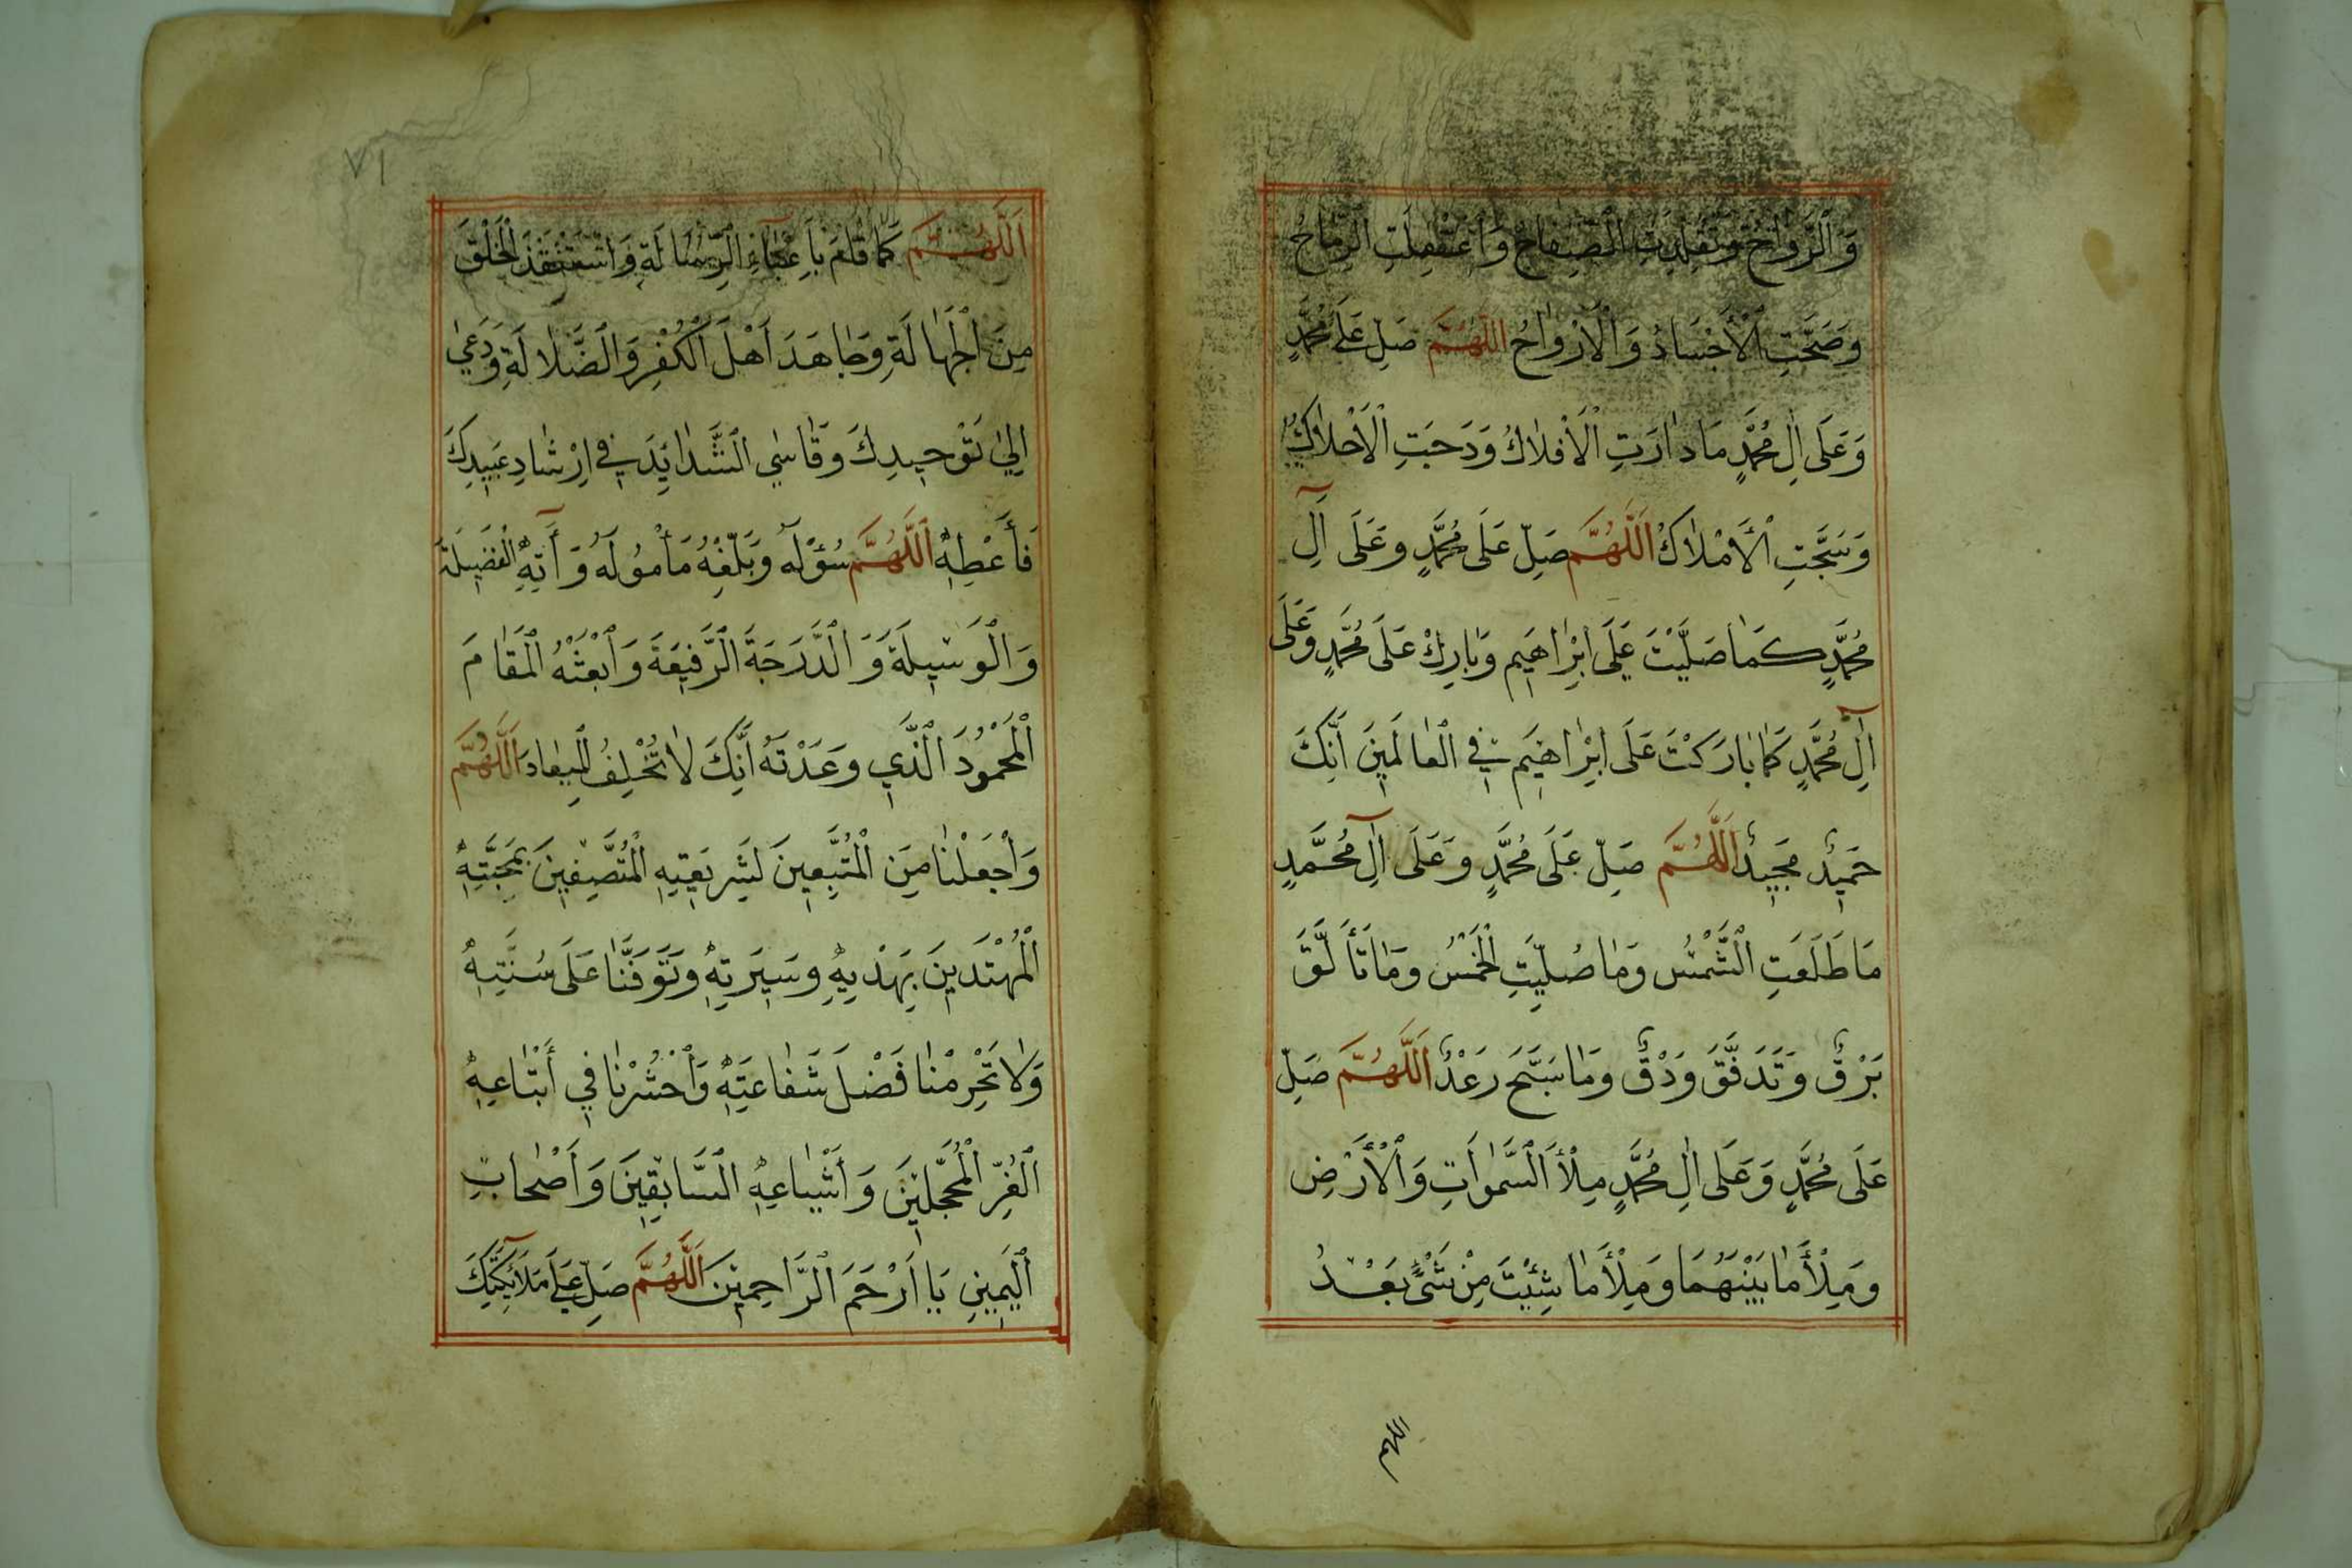 وَالرَّوَاحُ وَتَقَلَّدَتِ الصِّفَاحُ وَاعْتُقِلَتِ الرِّمَاحُ
وَصَحَّتِ الْأَجْسَادُ وَالْأَرْوَاحُ اَللّٰهُمَّ صَلِّ عَلَى مُحَمَّدٍ
وَعَلَى اٰلِ مُحَمَّدٍ مَا دَارَتِ الْأَفْلَاكُ وَدَجَتِ الْأَحْلَاكُ
وَسَبَّحَتِ الْأَمْلَاكُ اَللَّهُمَّ صَلِّ عَلَى مُحَمَّدٍ وَعَلَى آلِ
مُحَمَّدٍ كَمَا صَلَّيْتَ عَلَى اِبْرَاهِيمَ وَبَارِكْ عَلَى مُحَمَّدٍ وَعَلَى
آلِ مُحَمَّدٍ كَمَا بَارَكْتَ عَلَى اِبْرَاهِيمَ فِي الْعَالَمِينَ اَنَّكَ
حَمِيدٌ مَجِيدٌ اَللَّهُمَّ صَلِّ عَلَى مُحَمَّدٍ وَعَلَى آلِ مُحَمَّدٍ
مَا طَلَعَتِ الشَّمْسُ وَمَا صُلِّيَتِ الْخَمْسُ وَمَا تَأَلَّقَ
بَرْقٌ وَتَدَفَّقَ وَدْقٌ وَمَا سَبَّحَ رَعْدٌ اَللَّهُمَّ صَلِّ
عَلَى مُحَمَّدٍ وَعَلَى اٰلِ مُحَمَّدٍ مِلْأَ السَّمٰوَاتِ وَالْأَرْضِ
وَمِلْأَ مَا بَيْنَهُمَا وَمِلْأَ مَا شِئْتَ مِنْ شَيْءٍ بَعْدُ
اللهم
٧١
اَللَّهُمَّ كَمَا قَامَ بِاَعْبَآءِ الرِّسَالَةِ وَاسْتَنْقَذَ الْخَلْقَ
مِنَ الْجَهَالَةِ وَجَاهَدَ اَهْلَ الْكُفْرِ وَالضَّلَالَةِ وَدَعٰى
اِلٰى تَوْحِيدِكَ وَقَاسٰى الشَّدَائِدَ فِي اِرْشَادِ عَبِيدِكَ
فَأَعْطِهِ اَللَّهُمَّ سُؤْلَهُ وَبَلِّغْهُ مَأْمُولَهُ وَآتِهِ الْفَضِيلَةَ
وَالْوَسِيلَةَ وَالدَّرَجَةَ الرَّفِيعَةَ وَابْعَثْهُ الْمَقَامَ
الْمَحْمُودَ الَّذِي وَعَدْتَهُ اَنَّكَ لَا تُخْلِفُ الْمِيعَادَ اَللَّهُمَّ
وَاجْعَلْنَا مِنَ الْمُتَّبِعِينَ لِشَرِيعَتِهِ الْمُتَّصِفِينَ بِمَحَبَّتِهِ
الْمُهْتَدِينَ بِهَدْيِهِ وَسِيرَتِهِ وَتَوَفَّنَا عَلَى سُنَّتِهِ
وَلَا تَحْرِمْنَا فَضْلَ شَفَاعَتِهِ وَاحْشُرْنَا فِي أَتْبَاعِهِ
الْغُرِّ الْمُحَجَّلِينَ وَأَشْيَاعِهِ السَّابِقِينَ وَاَصْحَابِ
الْيَمِينِ يَا اَرْحَمَ الرَّاحِمِينَ اَللَّهُمَّ صَلِّ عَلَى مَلَآئِكَتِكَ